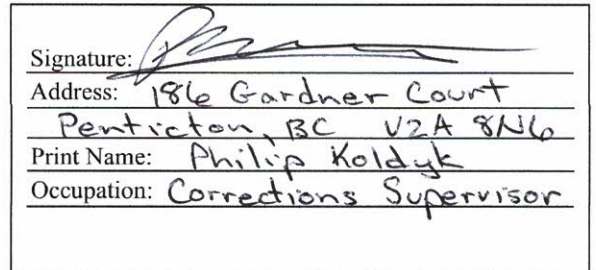 Signature:
Address: 186 Gardner Court
Penticton, BC V2A 8N6
Print Name: Philip Koldyk
Occupation: Corrections Supervisor